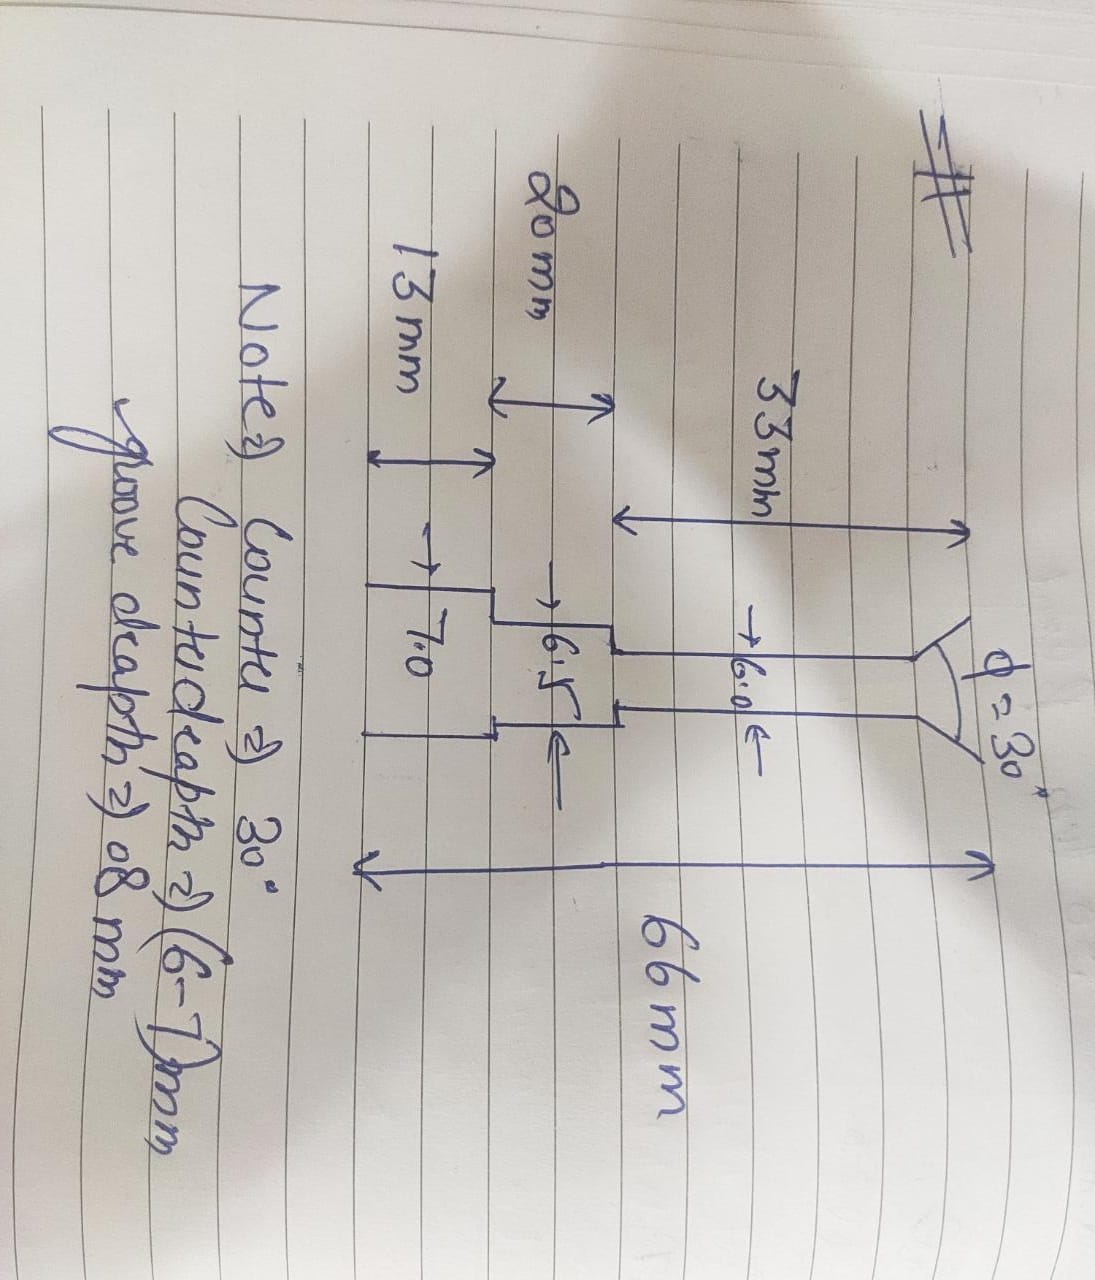 #
φ = 30°
33mm
→ 6.0 ←
20mm
→ 6.5 ←
66mm
13mm
→ 7.0
Note⇒ Counter ⇒ 30°
Counterdeapth ⇒ (6-7)mm
groove deapth ⇒ 08 mm